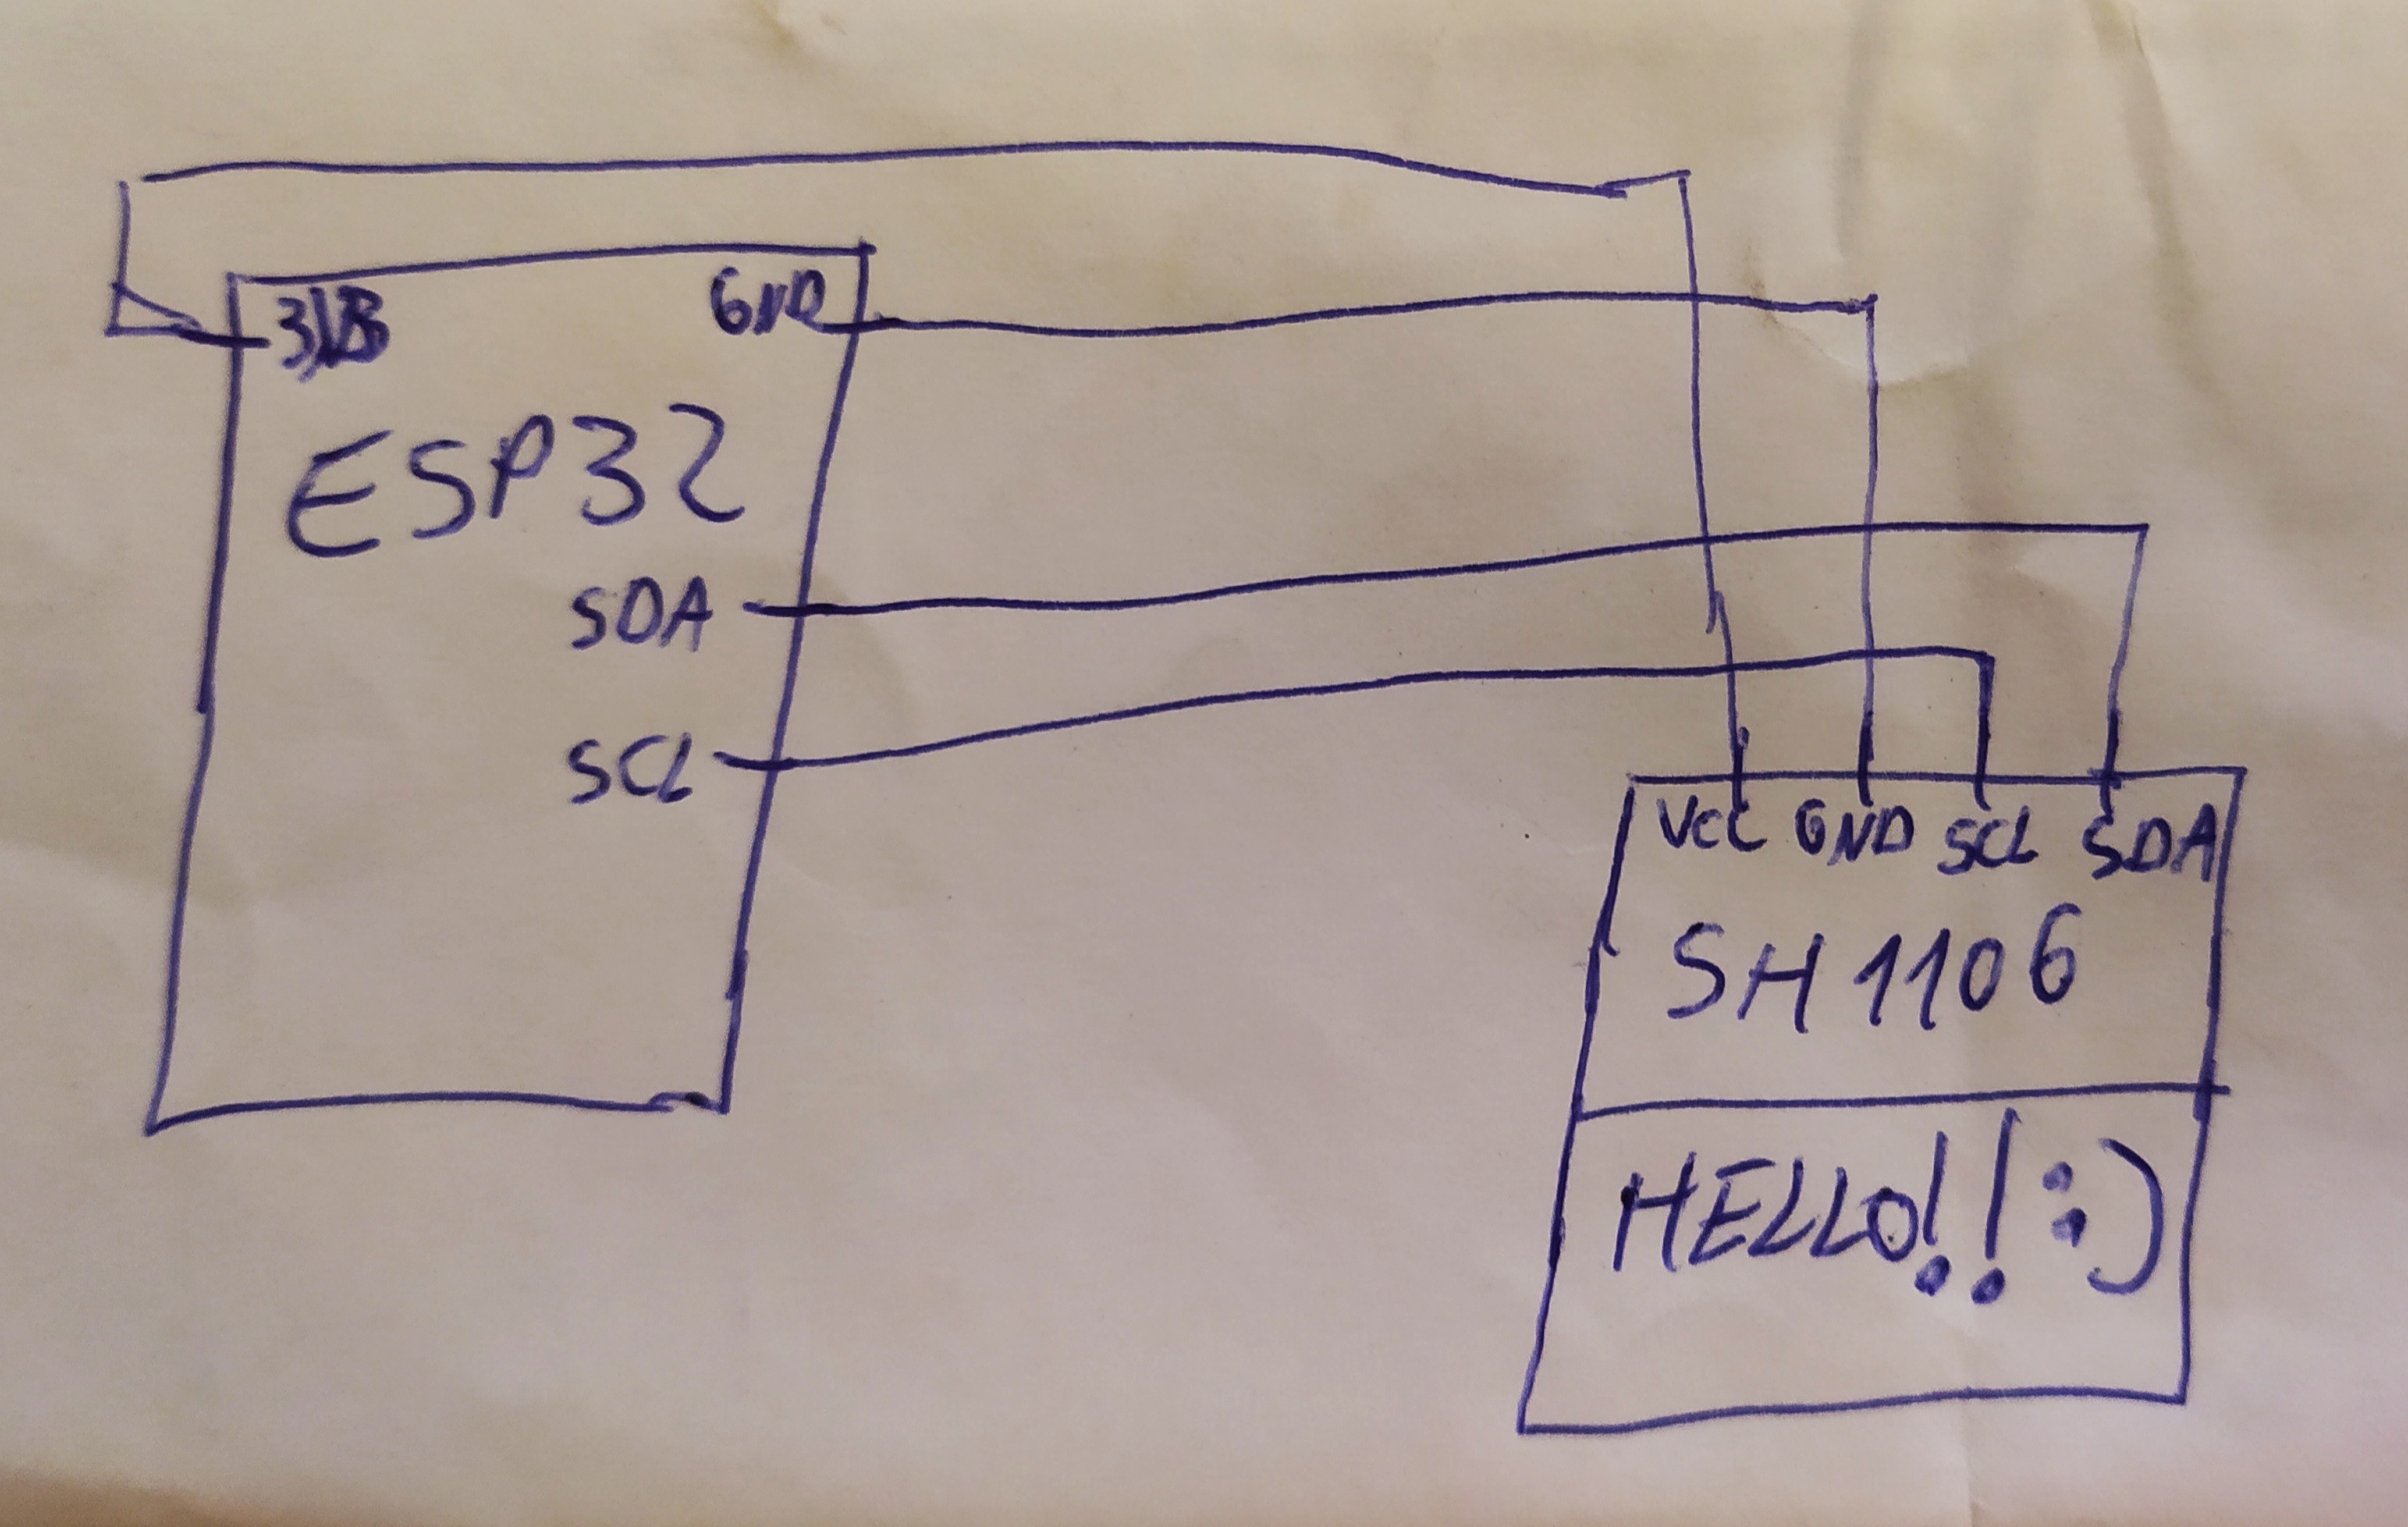 3V3 GND
ESP32
SDA
SCL
VCC GND SCL SDA
SH1106
HELLO!! :)